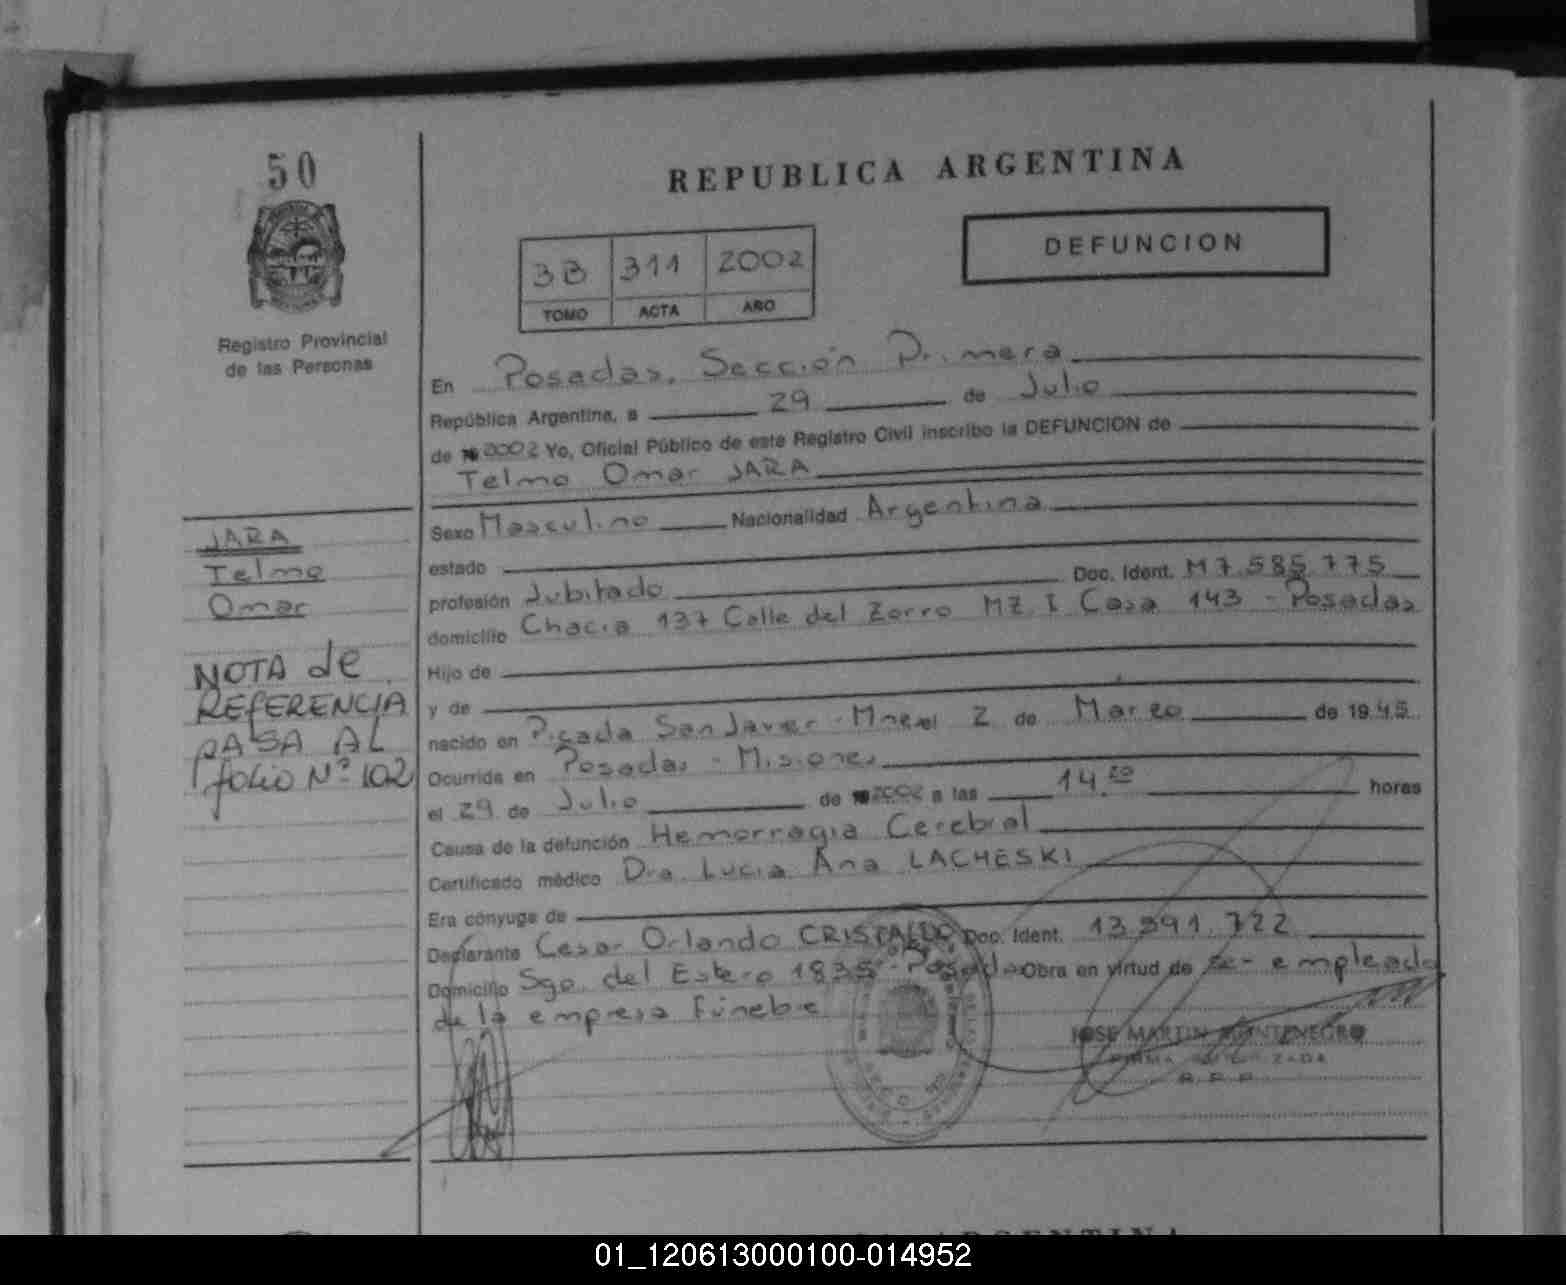 50
REPUBLICA ARGENTINA
DEFUNCION
3B 311 2002
TOMO ACTA AÑO
Registro Provincial
de las Personas
En Posadas, Sección Primera
República Argentina, a 29 de Julio
de 2002 Yo, Oficial Público de este Registro Civil inscribo la DEFUNCION de
Telmo Omar JARA
Sexo Masculino Nacionalidad Argentina
estado
profesión Jubilado Doc. Ident. M7.585.775
domicilio Chacra 137 Calle del Zorro MZ. I Casa 143 - Posadas
Hijo de
y de
nacido en Picada San Javier - Mnes el 2 de Marzo de 1945
Ocurrida en Posadas - Misiones
el 29 de Julio de 2002 a las 14.20 horas
Causa de la defunción Hemorragia Cerebral
Certificado médico Dra. Lucia Ana LACHESKI
Era cónyuge de
Declarante Cesar Orlando CRISTALDO Doc. Ident. 13.391.722
Domicilio Sgo. del Estero 1835 - Posadas Obra en virtud de ser empleado
de la empresa Fúnebre
JOSE MARTIN MONTENEGRO
FIRMA AUTORIZADA
R.P.P.
JARA
Telmo
Omar
NOTA de
REFERENCIA
PASA AL
folio Nº 102
ARGENTINA
01_120613000100-014952